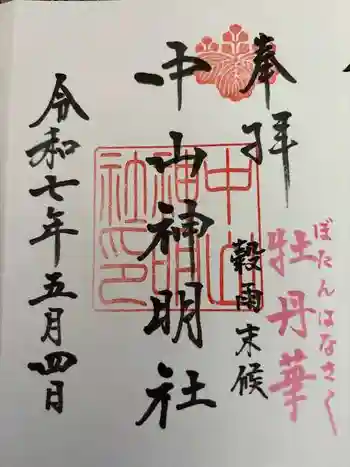 奉拝
ぼたんはなさく
牡丹華
穀雨末候
中山神明社
中山神明社印
令和七年五月四日